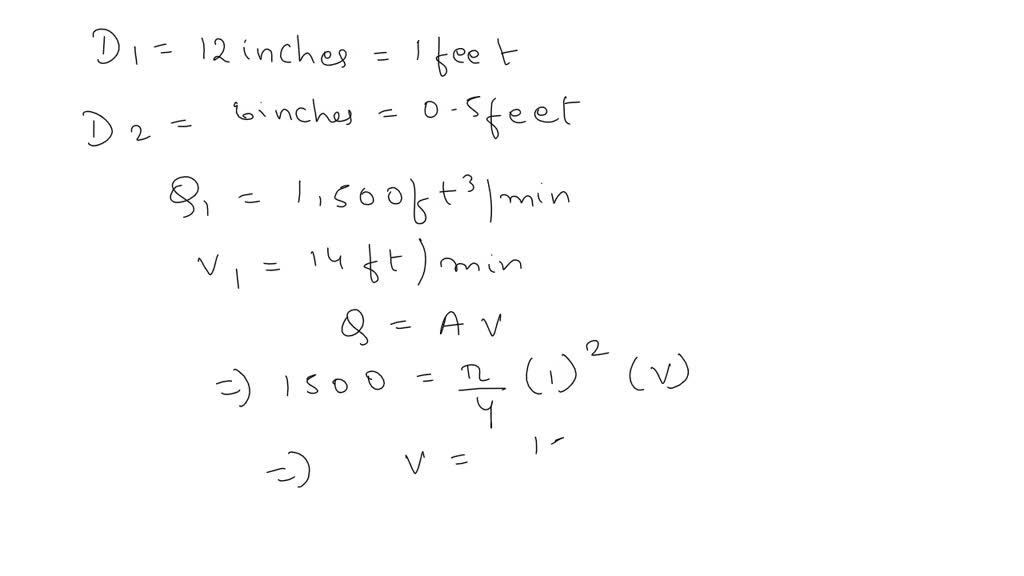 D1 = 12 inches = 1 feet
D2 = 6 inches = 0.5 feet
Q1 = 1,500 ft³/min
V1 = 14 ft/min
Q = A V
=> 1500 = π/4 (1)² (V)
=> V = 1